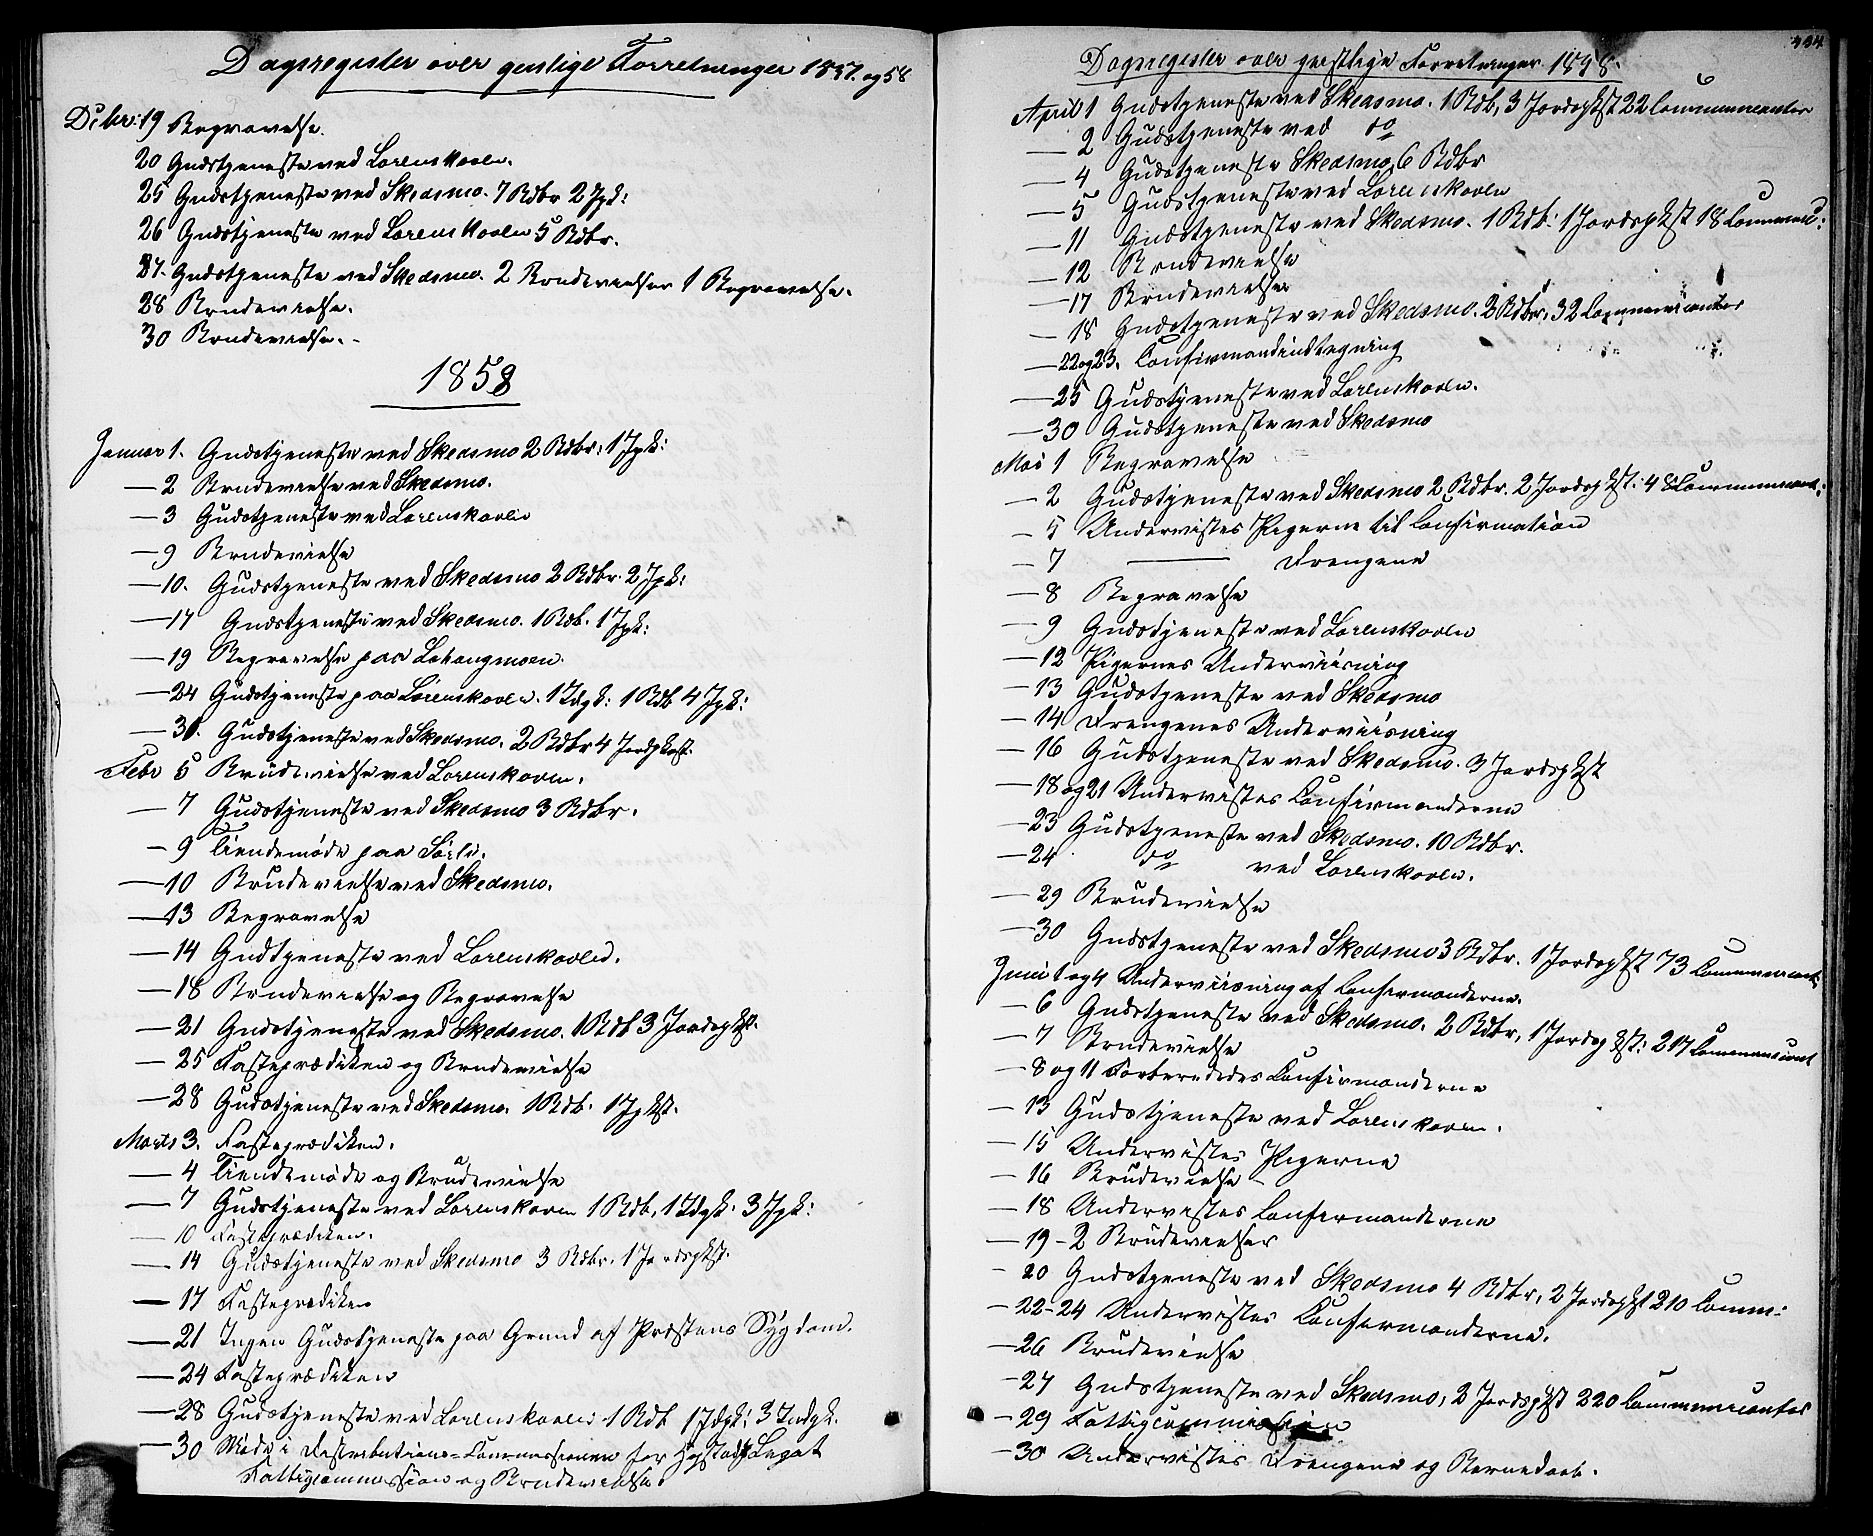 Dagsregister over geistlige Forretninger 1857. og 58
Debr: 19 Begravelse.
20 Gudstjeneste ved Lørenskoven.
25 Gudstjeneste ved Skedsmo. 7 Rdbr 2 Jpk:
26 Gudstjeneste ved Lørenskoven 5 Rdbr.
27. Gudstjeneste ved Skedsmo. 2 Brudevielser 1 Begravelse.
28 Brudevielse.
30 Brudevielse. -
1858
Januar 1. Gudstjeneste ved Skedsmo 2 Rdbr: 1 Jpk:
— 2 Brudevielse ved Skedsmo.
— 3 Gudstjeneste ved Lørenskoven
— 9 Brudevielse
— 10. Gudstjeneste ved Skedsmo 2 Rdbr. 2 Jpk:
— 17 Gudstjeneste ved Skedsmo. 1 Rdb. 1 Jpk:
— 19 Begravelse paa
— 24 Gudstjeneste paa Lørenskoven. 1 Idgk: 1 Rdb 4 Jpk:
— 31. Gudstjeneste ved Skedsmo. 2 Rdbr 4 Jordpkast.
Febr 5 Brudevielse ved Lørenskoven.
— 7 Gudstjeneste ved Skedsmo 3 Rdbr.
— 9 Tiendemøde paa
— 10 Brudevielse ved Skedsmo.
— 13 Begravelse
— 14 Gudtjeneste ved Lørenskoven.
— 18 Brudevielse og Begravelse
— 21 Gudstjeneste ved Skedsmo. 1 Rdb 3 Jordspkst.
— 25 Fasteprædiken og Brudevielse
— 28 Gudstjeneste ved Skedsmo. 1 Rdb. 1 Jpkst.
Marts 3. Fasteprædiken.
— 4 Tiendemøde og Brudevielse
— 7 Gudstjeneste ved Lørenskoven 1 Rdb, 1 Idgk. 3 Jpk:
— 10 Fasteprædiken.
— 14 Gudstjeneste ved Skedsmo 3 Rdbr. 1 Jordspkst.
— 17 Fasteprediken
— 21 Ingen Gudstjeneste paa Grund af Præstens Sygdom.
— 24 Fasteprædiken
— 28 Gudstjeneste ved Lørenskoven 1 Rdb 1 Idgk: 3 Jpk.
— 30 Møde i Distributions-Commissionen for Legat
Fattigcommission og Brudevielse
Dagsregister over geistlige Forretninger 1858.
April 1 Gudstjeneste ved Skedsmo. 1 Rdb, 3 Jordspkst 22 Communicanter
— 2 Gudstjeneste ved do
— 4 Gudstjeneste Skedsmo 6 Rdbr
— 5 Gudstjeneste ved Lørenskoven
— 11 Gudstjeneste ved Skedsmo. 1 Rdb: 1 Jordspkst 18 Communic:
— 12 Brudevielse
— 17 Brudevielse
— 18 Gudstjeneste ved Skedsmo. 2 Rdbr, 32 Communicanter
— 22 og 23. Confirmandindtegning
— 25 Gudstjeneste ved Lørenskoven.
— 30 Gudstjeneste ved Skedsmo
Mai 1 Begravelse
— 2 Gudstjeneste ved Skedsmo 2 Rdbr. 2 Jordspkst: 48 Communicant:
— 5 Undervistes Pigerne til Confirmation
— 7 — Drengene
— 8 Begravelse
— 9 Gudstjeneste ved Lørenskoven
— 12 Pigernes Underviisning
— 13 Gudstjeneste ved Skedsmo
— 14 Drengenes Underviisning
— 16 Gudstjeneste ved Skedsmo. 3 Jordspkst
— 18 og 21 Undervistes Confirmanderne
— 23 Gudstjeneste ved Skedsmo. 10 Rdbr.
— 24 do ved Lørenskoven.
— 29 Brudevielse
— 30 Gudstjeneste ved Skedsmo 3 Rdbr. 1 Jordspkst 73 Communicant
Juni 1 og 4 Underviisning af Confirmanderne.
— 6 Gudstjeneste ved Skedsmo. 2 Rdbr, 1 Jordspkst: 217 Communicant
— 7 Brudevielse
— 8 og 11 Forberededes Confirmanderne
— 13 Gudstjeneste ved Lørenskoven.
— 15 Undervistes Pigerne
— 16 Brudevielse
— 18 Undervistes Confirmanderne
— 19 - 2 Brudevielser
— 20 Gudstjeneste ved Skedsmo 4 Rdbr, 2 Jordspkst 210 Comm:
— 22 - 24 Undervistes Confirmanderne.
— 26 Brudevielse
— 27 Gudstjeneste ved Skedsmo, 2 Jordspkst 220 Communicanter
— 29 Fattigcommission
— 30 Undervistes Drengene og Barnedaab.